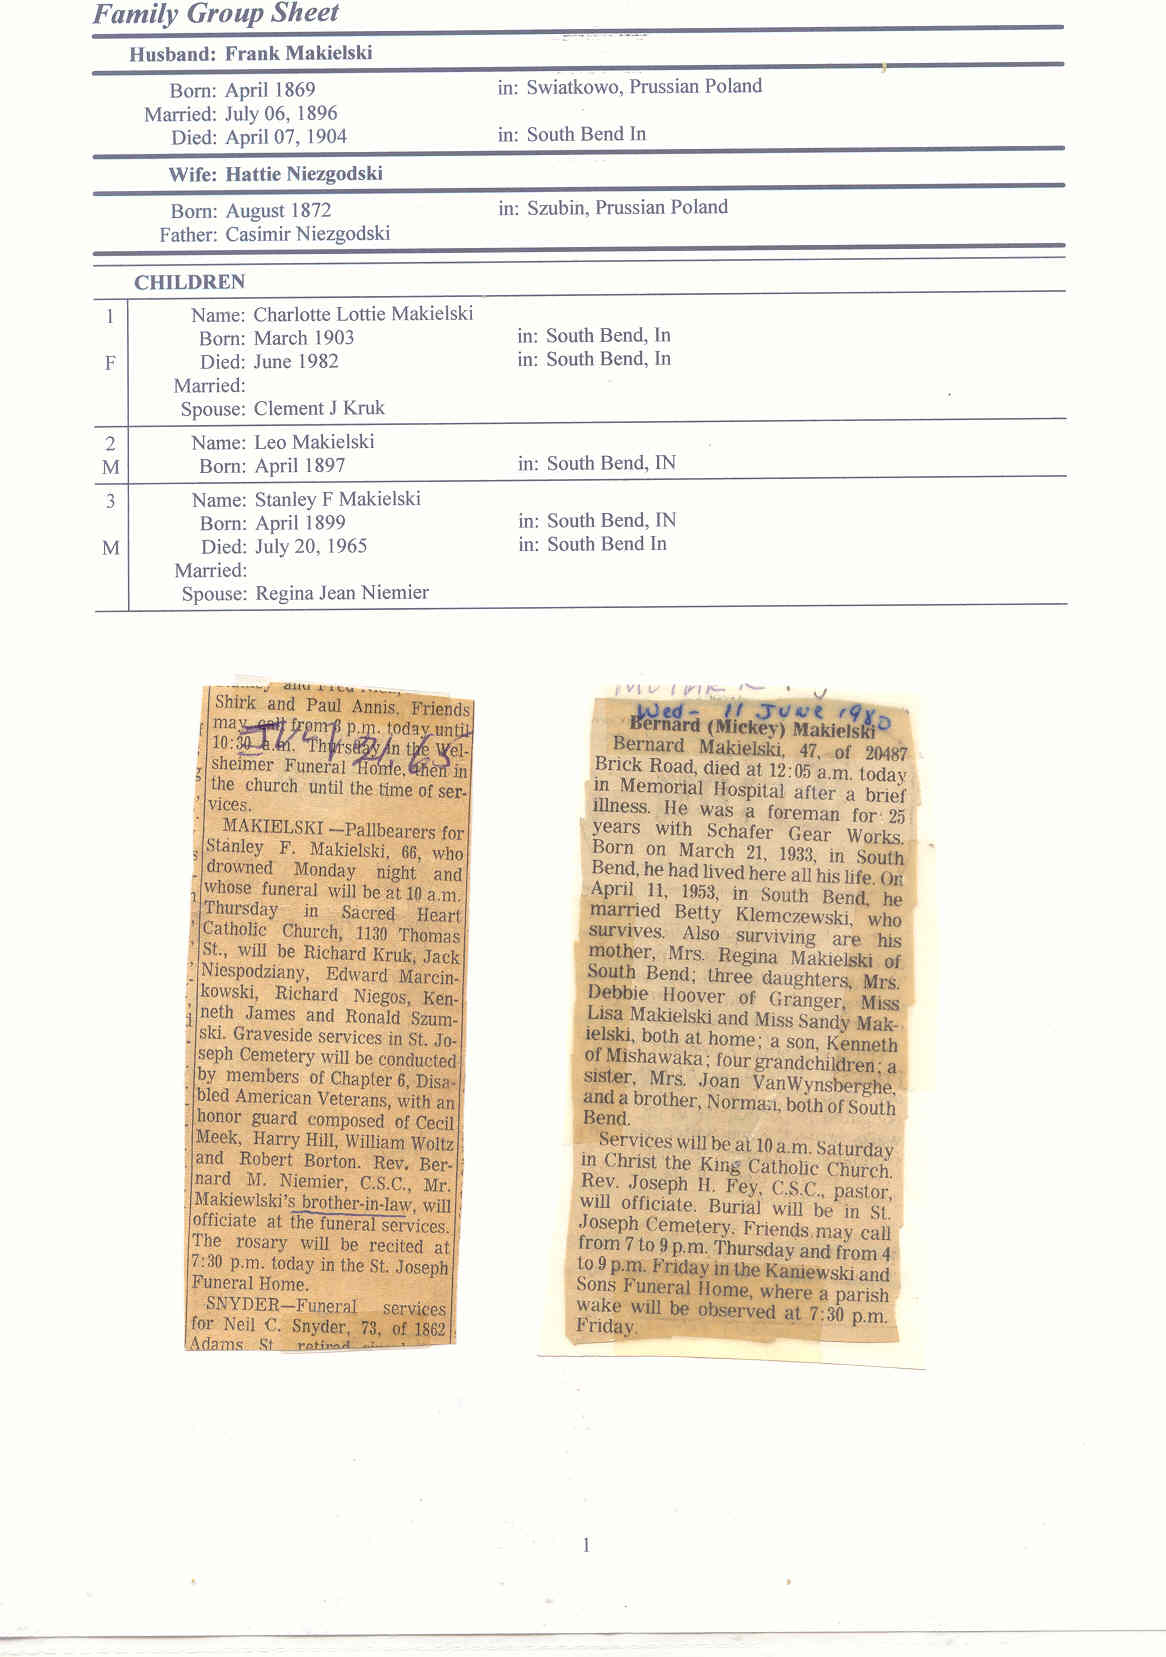 Family Group Sheet
Husband: Frank Makielski
Born: April 1869 in: Swiatkowo, Prussian Poland
Married: July 06, 1896
Died: April 07, 1904 in: South Bend In
Wife: Hattie Niezgodski
Born: August 1872 in: Szubin, Prussian Poland
Father: Casimir Niezgodski
CHILDREN
1 Name: Charlotte Lottie Makielski
Born: March 1903 in: South Bend, In
F Died: June 1982 in: South Bend, In
Married:
Spouse: Clement J Kruk
2 Name: Leo Makielski
M Born: April 1897 in: South Bend, IN
3 Name: Stanley F Makielski
Born: April 1899 in: South Bend, IN
M Died: July 20, 1965 in: South Bend In
Married:
Spouse: Regina Jean Niemier
and Fred
Shirk and Paul Annis. Friends
may call from 8 p.m. today until
10:30 a.m. Thursday in the Wel-
sheimer Funeral Home, then in
the church until the time of ser-
vices.
MAKIELSKI —Pallbearers for
Stanley F. Makielski, 66, who
drowned Monday night and
whose funeral will be at 10 a.m.
Thursday in Sacred Heart
Catholic Church, 1130 Thomas
St., will be Richard Kruk, Jack
Niespodziany, Edward Marcin-
kowski, Richard Niegos, Ken-
neth James and Ronald Szum-
ski. Graveside services in St. Jo-
seph Cemetery will be conducted
by members of Chapter 6, Disa-
bled American Veterans, with an
honor guard composed of Cecil
Meek, Harry Hill, William Woltz
and Robert Borton. Rev. Ber-
nard M. Niemier, C.S.C., Mr.
Makiewlski's brother-in-law, will
officiate at the funeral services.
The rosary will be recited at
7:30 p.m. today in the St. Joseph
Funeral Home.
SNYDER—Funeral services
for Neil C. Snyder, 73, of 1862
Adams St. retired
July 21, 65
Wed- 11 JUNE 1980
Bernard (Mickey) Makielski
Bernard Makielski, 47, of 20487
Brick Road, died at 12:05 a.m. today
in Memorial Hospital after a brief
illness. He was a foreman for 25
years with Schafer Gear Works.
Born on March 21, 1933, in South
Bend, he had lived here all his life. On
April 11, 1953, in South Bend, he
married Betty Klemczewski, who
survives. Also surviving are his
mother, Mrs. Regina Makielski of
South Bend; three daughters, Mrs.
Debbie Hoover of Granger, Miss
Lisa Makielski and Miss Sandy Mak-
ielski, both at home; a son, Kenneth
of Mishawaka; four grandchildren; a
sister, Mrs. Joan VanWynsberghe,
and a brother, Norman, both of South
Bend.
Services will be at 10 a.m. Saturday
in Christ the King Catholic Church.
Rev. Joseph H. Fey, C.S.C., pastor,
will officiate. Burial will be in St.
Joseph Cemetery. Friends may call
from 7 to 9 p.m. Thursday and from 4
to 9 p.m. Friday in the Kaniewski and
Sons Funeral Home, where a parish
wake will be observed at 7:30 p.m.
Friday.
1